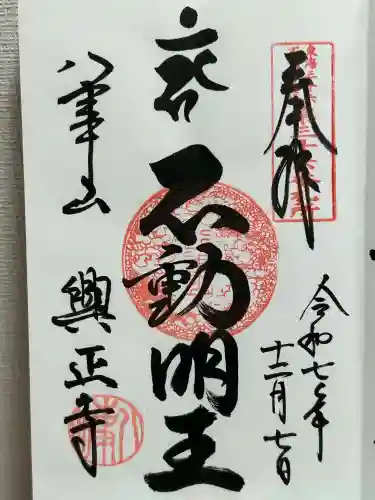 奉拝
令和七年
十二月七日
不動明王
八事山 興正寺